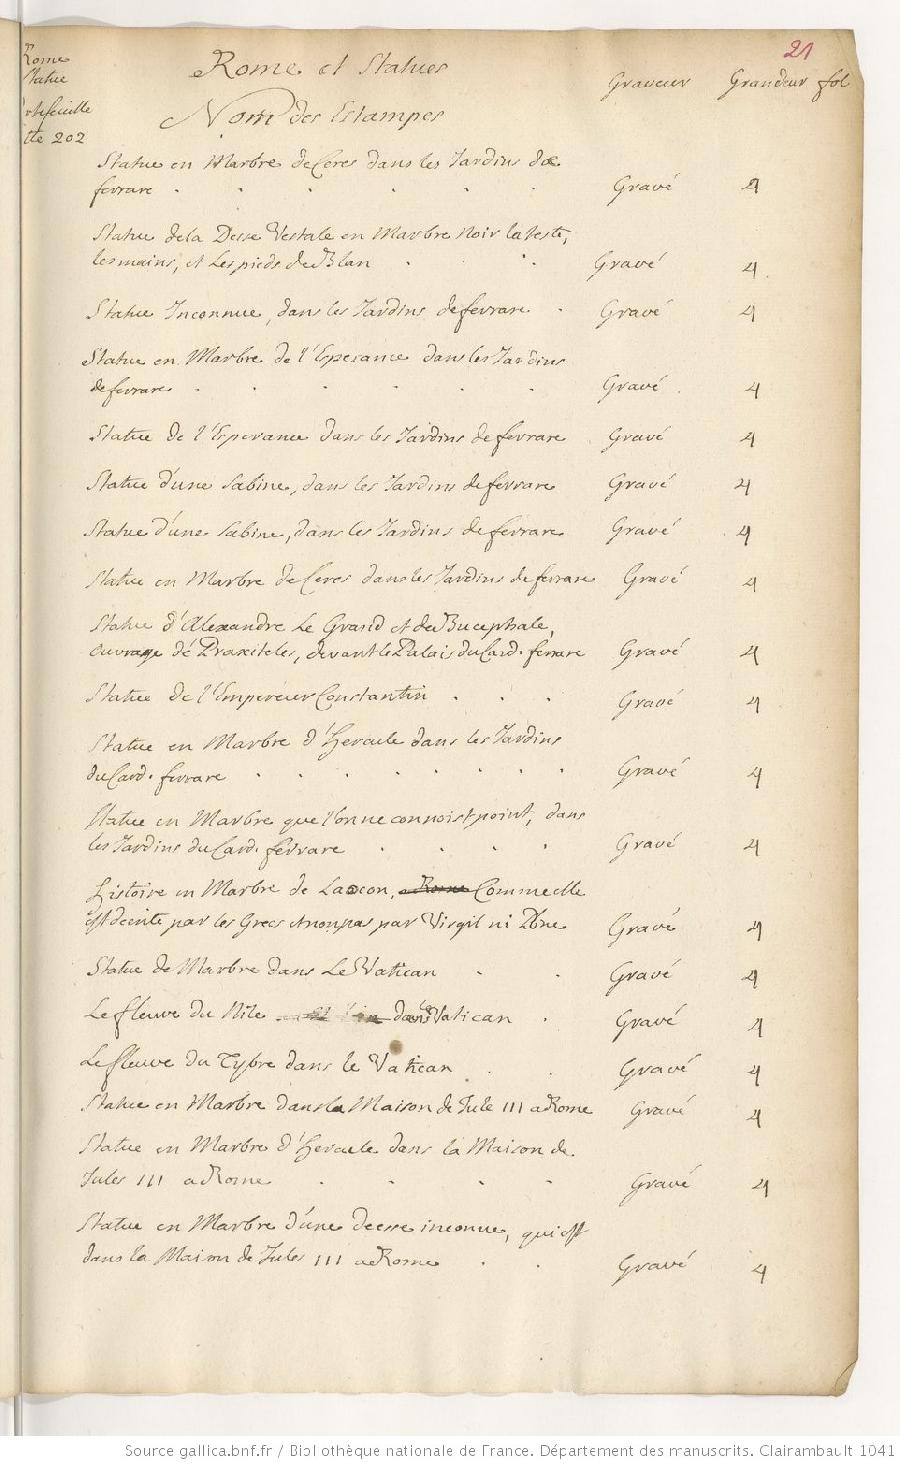 21
Rome
Statue
Rome et Statues
Graveur Grandeur fol
rtefeuille
tte 202
Nom des Estampes
Statue en Marbre de Ceres dans les Jardins de
ferrare Gravé 4
Statue de la Desse Vestale en Marbre Noir la teste,
les mains, et Les pieds de Blan Gravé 4
Statue Inconnue, dans les Jardins de ferrare Gravé 4
Statue en Marbre de l'Esperance dans les Jardins
de ferrare Gravé 4
Statue de l'Esperance dans les Jardins de ferrare Gravé 4
Statue d'une Sabine, dans les Jardins de ferrare Gravé 4
Statue d'une Sabine, dans les Jardins de ferrare Gravé 4
Statue en Marbre de Ceres dans les Jardins de ferrare Gravé 4
Statue d'Alexandre Le Grand et de Bucephale,
ouvrage de Praxiteles, devant le Palais du Card. ferrare Gravé 4
Statue de l'Empereur Constantin Gravé 4
Statue en Marbre d'Hercule dans les Jardins
du Card. ferrare Gravé 4
Statue en Marbre que l'on ne connoist point, dans
les Jardins du Card. ferrare Gravé 4
Listoire en Marbre de Laocon, Rome Comme elle
est décrite par les Grecs et non pas par Virgil ni Pline Gravé 4
Statue de Marbre dans Le Vatican Gravé 4
Le fleuve du Nile dans le Vatican Gravé 4
Le fleuve du Tybre dans le Vatican Gravé 4
Statue en Marbre dans la Maison de Jule III a Rome Gravé 4
Statue en Marbre d'Hercule dans la Maison de
Jules III a Rome Gravé 4
Statue en Marbre d'une deesse inconue, qui est
dans la Maison de Jules III a Rome Gravé 4
Source gallica.bnf.fr / Bibliothèque nationale de France. Département des manuscrits. Clairambault 1041